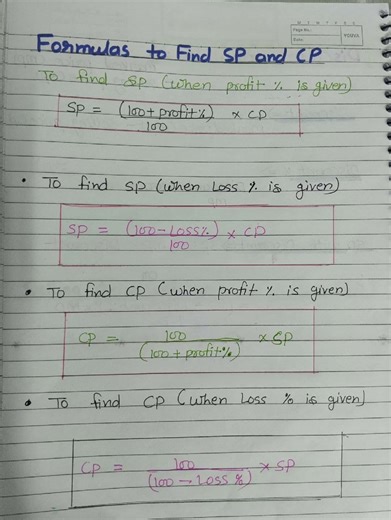 Formulas to Find SP and CP
To find SP (when profit % is given)
SP = (100+profit%)/100 × CP
• To find SP (when Loss % is given)
SP = (100-Loss%)/100 × CP
• To find CP (when profit % is given)
CP = 100/(100+profit%) × SP
• To find CP (when Loss % is given)
CP = 100/(100-Loss %) × SP